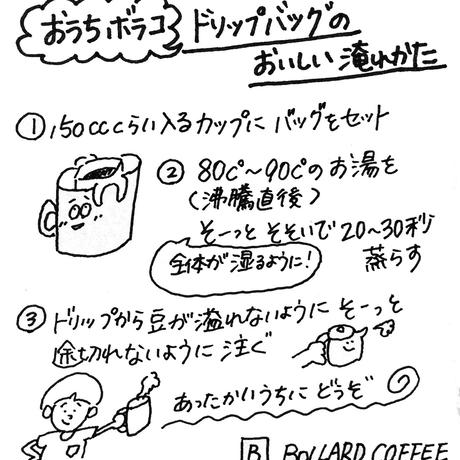 おうちボラコ
ドリップバッグの
おいしい淹れかた
① 150ccくらい入るカップに バッグをセット
② 80℃〜90℃のお湯を
(沸騰直後)
そーっと そそいで 20〜30秒
蒸らす
全体が湿るように!
③ ドリップから豆が溢れないように そーっと
途切れないように 注ぐ
あったかいうちに どうぞ
B BOLLARD COFFEE